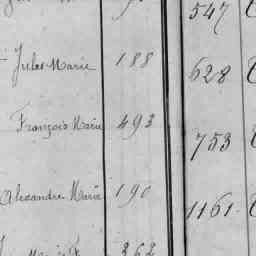 547
Jules Marie 188
628
François Marie 493
753
Alexandre Marie 190
1161
362